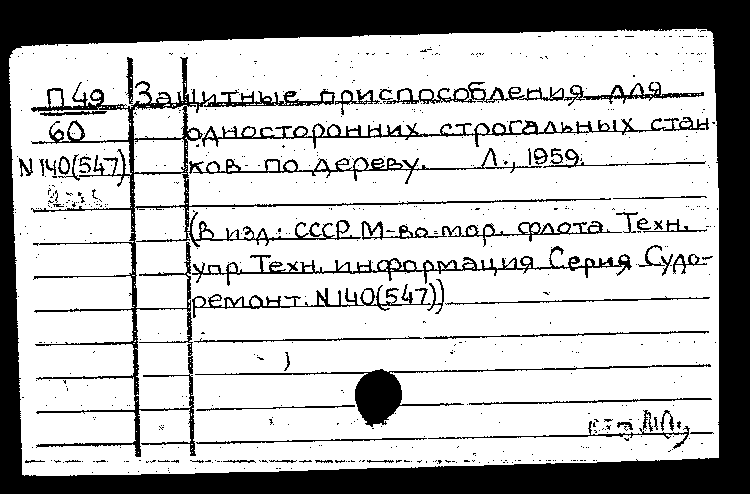 П49 Защитные приспособления для
60 односторонних строгальных стан-
N140(547) ков по дереву. Л., 1959.
(В изд.: СССР М-во мор. флота Техн.
упр. Техн. информация Серия Судо-
ремонт. N140(547))